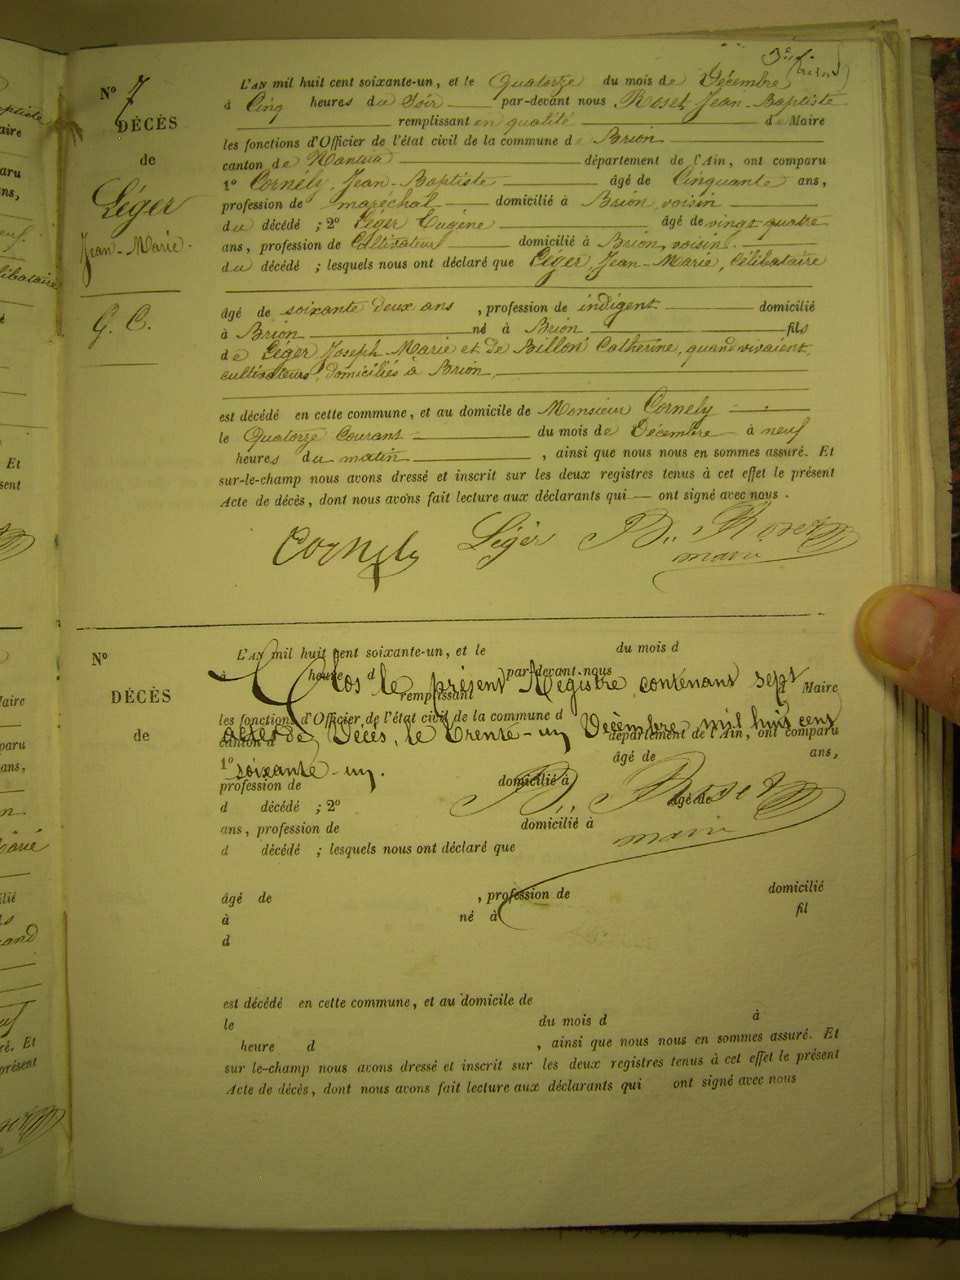 3e f.
N° 7
DÉCÈS
de
Léger
Jean-Marie.
G. C.
L'AN mil huit cent soixante-un, et le Quatorze du mois de Décembre
à Cinq heures du Soir par-devant nous Roset Jean-Baptiste
remplissant en qualité de Maire
les fonctions d'Officier de l'état civil de la commune de Brion
canton de Nantua département de l'Ain, ont comparu
1° Cornély, Jean-Baptiste âgé de Cinquante ans,
profession de maréchal domicilié à Brion, voisin
du décédé ; 2° Léger Eugène âgé de vingt quatre
ans, profession de Cultivateur domicilié à Brion, voisin
du décédé ; lesquels nous ont déclaré que Léger, Jean-Marie, Célibataire
âgé de soixante deux ans , profession de indigent domicilié
à Brion né à Brion fils
de Léger Joseph Marie et de Billon Catherine, quand vivaient,
cultivateurs, domiciliés à Brion,
est décédé en cette commune, et au domicile de Monsieur Cornely
le Quatorze Courant du mois de Décembre à neuf
heures du matin , ainsi que nous nous en sommes assuré. Et
sur-le-champ nous avons dressé et inscrit sur les deux registres tenus à cet effet le présent
Acte de décès, dont nous avons fait lecture aux déclarants qui ont signé avec nous .
Cornely Léger B. Roset
maire
N°
DÉCÈS
de
L'AN mil huit cent soixante-un, et le du mois d
à heure d par-devant nous
Clos le présent Régistre, contenant sept
remplissant d Maire
les fonctions d'Officier de l'état civil de la commune d
actes de Décès, le trente-un Décembre mil huit cent
canton d département de l'Ain, ont comparu
1° âgé de ans,
soixante-un.
profession de domicilié à
d décédé ; 2° âgé de
B. Roset
ans, profession de domicilié à
maire
d décédé ; lesquels nous ont déclaré que
âgé de , profession de domicilié
à né à fil
d
est décédé en cette commune, et au domicile de
le du mois d à
heure d , ainsi que nous nous en sommes assuré. Et
sur le-champ nous avons dressé et inscrit sur les deux registres tenus à cet effet le présent
Acte de décès, dont nous avons fait lecture aux déclarants qui ont signé avec nous